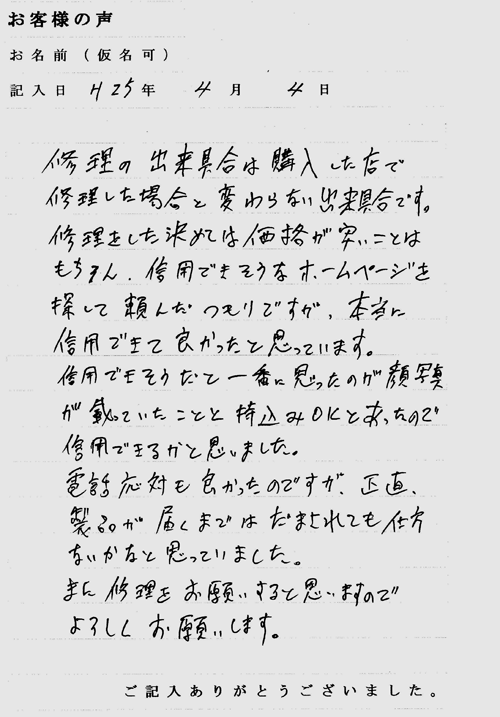 お客様の声
お名前(仮名可)
記入日 H25年 4月 4日
修理の出来具合は購入した店で
修理した場合と変わらない出来具合です。
修理をした決めては価格が安いことは
もちろん、信用できそうなホームページを
探して頼んだつもりですが、本当に
信用できて良かったと思っています。
信用できそうだと一番に思ったのが顔写真
が載っていたことと持込みOKとあったので
信用できるかと思いました。
電話応対も良かったのですが、正直、
製品が届くまではだまされても仕方
ないかなと思っていました。
また修理をお願いすると思いますので
よろしくお願いします。
ご記入ありがとうございました。